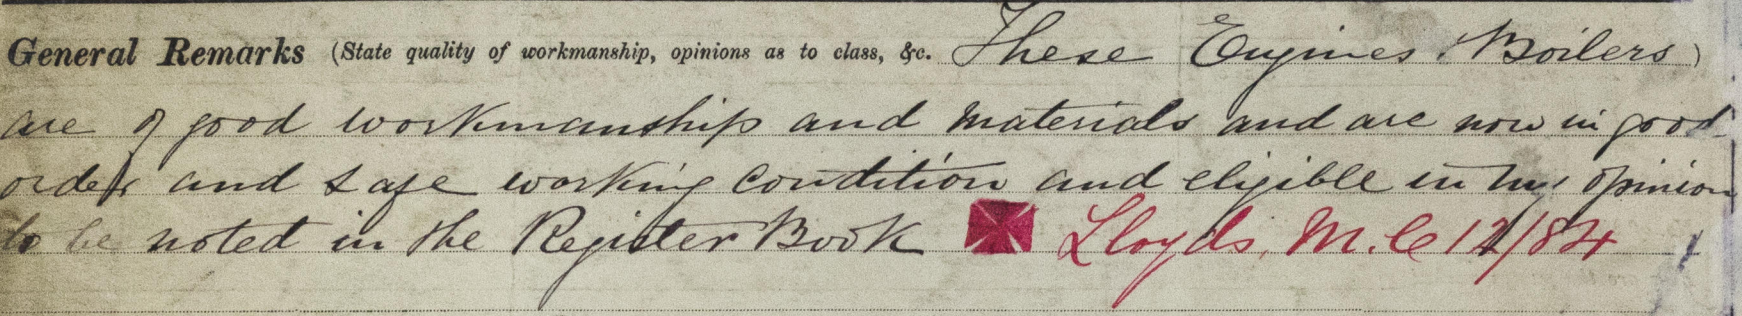 General Remarks (State quality of workmanship, opinions as to class, &c. These Engines & Boilers)
are of good workmanship and materials and are now in good
order and safe working condition and eligible in my opinion
to be noted in the Register Book ✠ Lloyds. M.C 12/84